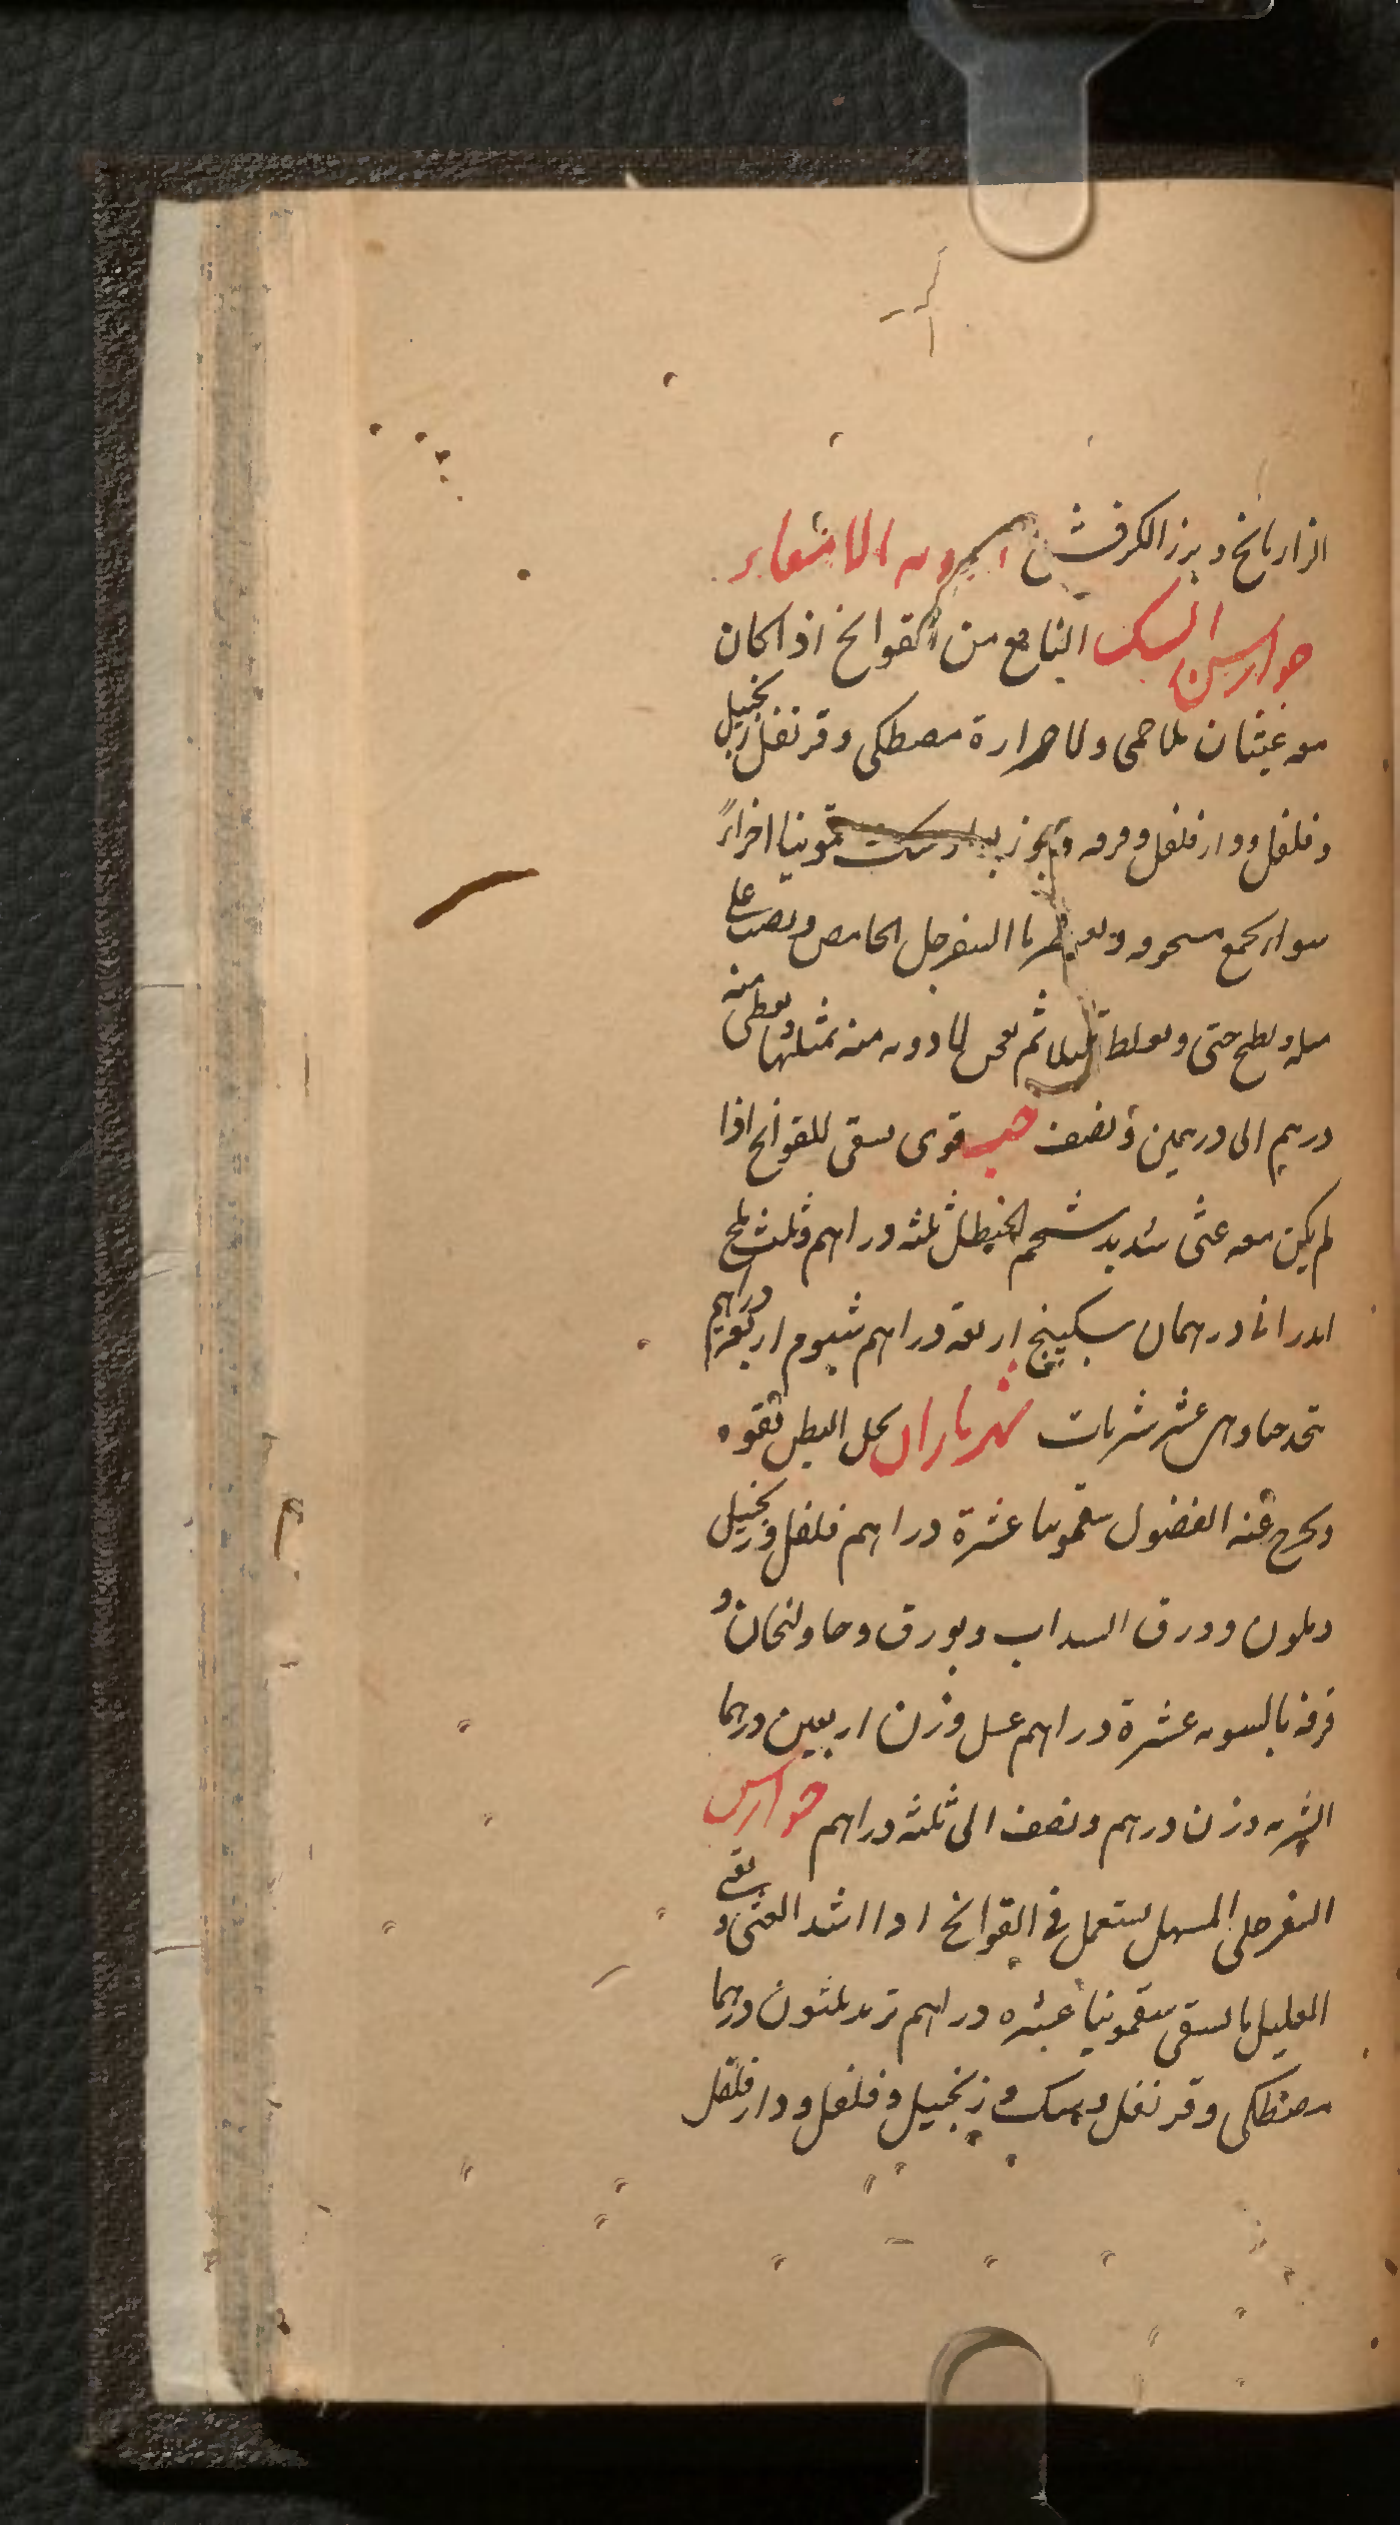 الرازيانج وبزر الكرفس ادوية الامعاء
جوارشن السك النافع من القولنج اذا كان
معه غثيان بلا حمى ولا حرارة مصطكى وقرنفل زنجبيل
وفلفل ودارفلفل وقرفه وجوز سقمونيا اجزاءً
سواء يجمع مسحوقه ويعصر ما السفرجل الحامض ويصب على
مثله ويطبخ حتى ويغلظ قليلا ثم يعجن الادويه منه بمثلها ويعطى منه
درهم الى درهمين ونصف حب قوى يسقى للقولنج اذا
لم يكن معه غثى شديد شحم الحنظل ثلثه دراهم وثلث ملح
اندرانى درهمان سكبينج اربعة دراهم شبرم اربعة دراهم
يتخذ حبا وهى عشر شربات شهرياران يحل البطن بقوه
ويخرج عنه الفضول سقمونيا عشرة دراهم فلفل وزنجبيل
وكمون وورق السداب وبورق وخاولنجان و
قرفه بالسويه عشرة دراهم عسل وزن اربعين درهما
الشربه وزن درهم ونصف الى ثلثه دراهم جوارش
السفرجلى المسهل يستعمل فى القولنج اذا اشتد الغثى و
العليل ما يسقى سقمونيا عشره دراهم تربد ثلثون درهما
مصطكى وقرنفل وسك وزنجبيل وفلفل ودارفلفل